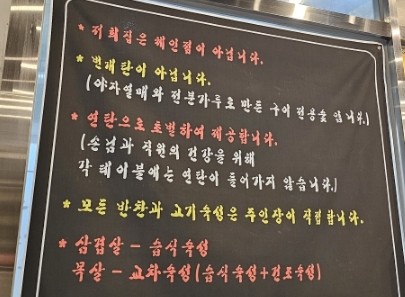 * 저희집은 체인점이 아닙니다.
* 번개탄이 아닙니다.
(야자열매와 전분가루로 만든 구이 전용숯 입니다.)
* 연탄으로 초벌하여 제공합니다.
(손님과 직원의 건강을 위해
각 테이블에는 연탄이 들어가지 않습니다.)
* 모든 반찬과 고기숙성은 주인장이 직접합니다.
* 삼겹살 - 습식숙성
목살 - 교차숙성(습식숙성+건조숙성)